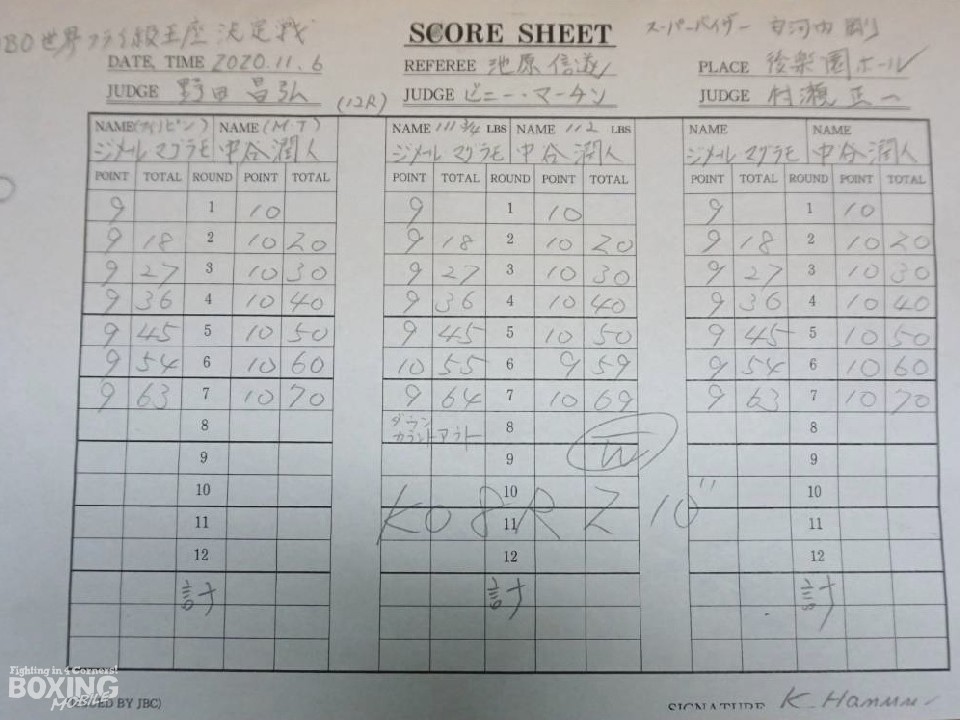 BO世界フライ級王座決定戦 SCORE SHEET スーパーバイザー
DATE, TIME 2020.11.6 REFEREE 池原信遂 PLACE 後楽園ホール
JUDGE 野田昌弘 (12R) JUDGE ビニー・マーチン JUDGE 村瀬正一
NAME(フィリピン) NAME(M・T) NAME 111 3/4 LBS NAME 112 LBS NAME NAME
ジメール マグラモ 中谷潤人 ジメール マグラモ 中谷潤人 ジメール マグラモ 中谷潤人
POINT TOTAL ROUND POINT TOTAL POINT TOTAL ROUND POINT TOTAL POINT TOTAL ROUND POINT TOTAL
9 1 10 9 1 10 9 1 10
9 18 2 10 20 9 18 2 10 20 9 18 2 10 20
9 27 3 10 30 9 27 3 10 30 9 27 3 10 30
9 36 4 10 40 9 36 4 10 40 9 36 4 10 40
9 45 5 10 50 9 45 5 10 50 9 45 5 10 50
9 54 6 10 60 10 55 6 9 59 9 54 6 10 60
9 63 7 10 70 9 64 7 10 69 9 63 7 10 70
8 ダウン カウントアウト 8 8
9 9 W 9
10 10 10
KO 8R 2 10"
11 11 11
12 12 12
計 計 計
Fighting in 4 Corners!
BOXING
MOBILE
BY JBC) SIGNATURE K.